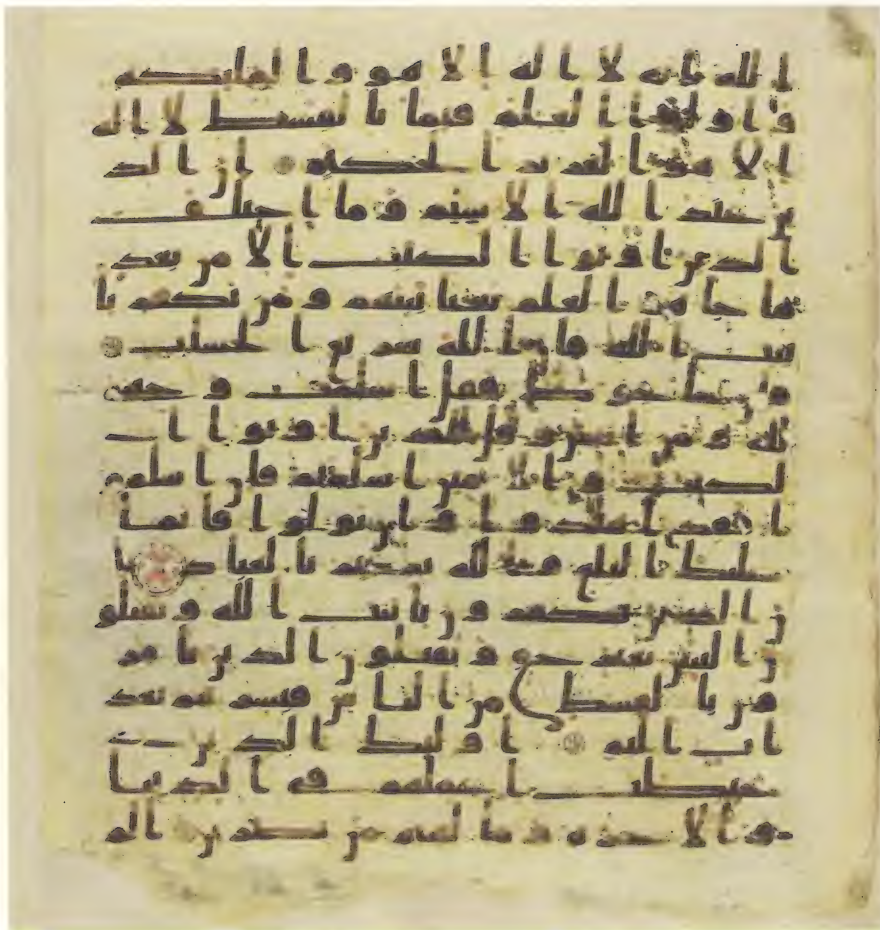 الله انه لا اله الا هو والمليكه
واولوا العلم قيما بالقسط لا اله
الا هو العزيز الحكيم ان الد
ين عند الله الاسلم وما اختلف
الذين اوتوا الكتب الا من بعد
ما جاهم العلم بغيا بينهم ومن يكفر با
يت الله فان الله سريع الحساب
فان حاجوك فقل اسلمت وجهي
لله ومن اتبعن وقل للذين اوتوا ا
لكتب والامين اسلمتم فان اسلمو
ا فقد اهتدوا وان تولوا فانما
عليك البلغ والله بصير بالعباد ا
ن الذين يكفرون بايت الله ويقتلو
ن النبين بغير حق ويقتلون الذين يامر
ون بالقسط من الناس فبشرهم بعذ
اب اليم اوليك الذين
حبطت اعملهم في الدنيا
والاخره وما لهم من نصرين الم